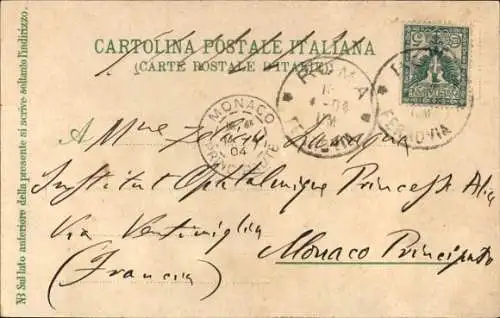 CARTOLINA POSTALE ITALIANA
(CARTE POSTALE D'ITALIE)
NB Sul lato anteriore della presente si scrive soltanto l'indirizzo.
ROMA
FERROVIA
MONACO
04
A Mme
Institut Ophtalmique Princesse Alice
Via Ventimiglia
Monaco Principato
(Francia)